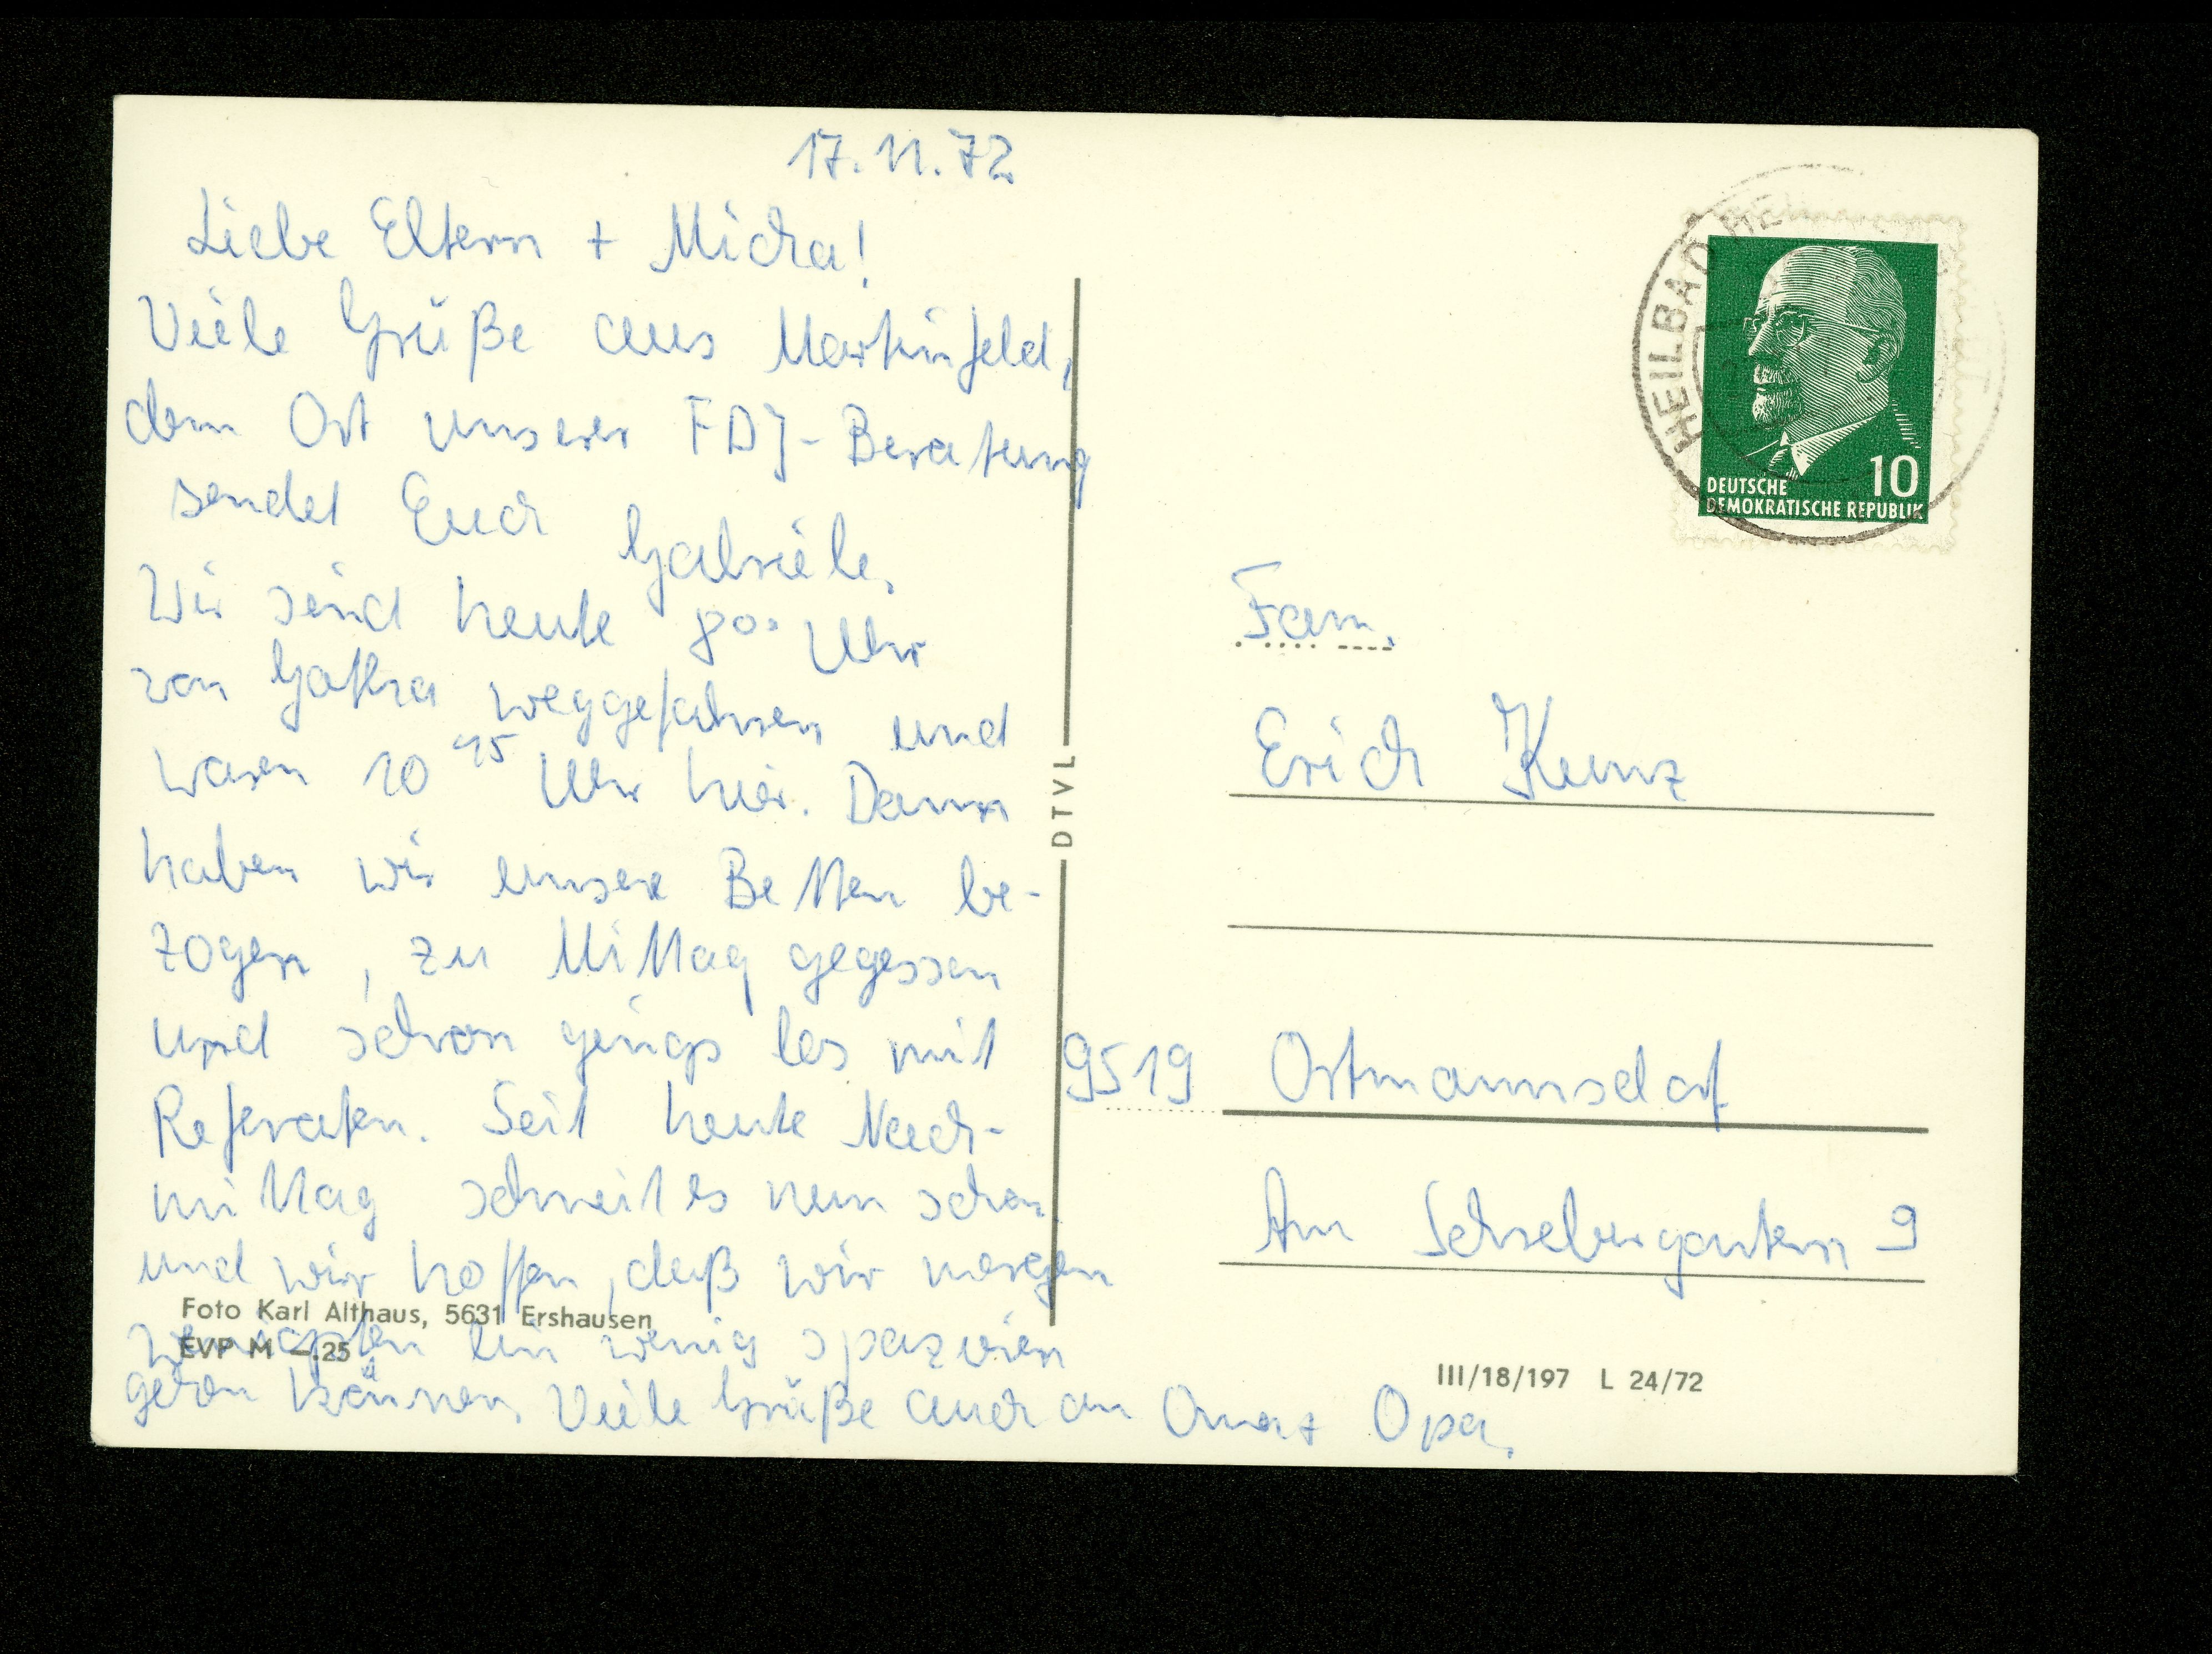 17.11.72
Liebe Eltern + Micha!
Viele Grüße aus Martinfeld,
dem Ort unserer FDJ-Beratung
sendet Euch Gabriele.
Wir sind heute 8⁰⁰ Uhr
von Gotha weggefahren und
waren 10¹⁵ Uhr hier. Dann
haben wir unsere Betten be-
zogen, zu Mittag gegessen
und schon gings los mit
Referaten. Seit heute Nach-
mittag schneit es nun schon
und wir hoffen, daß wir morgen
wenigsten ein wenig spazieren
gehen können. Viele Grüße auch an Oma + Opa.
Foto Karl Althaus, 5631 Ershausen
EVP M -.25
DTVL
HEILBAD HE
DEUTSCHE
DEMOKRATISCHE REPUBLIK
10
Fam.
Erich Kunz
9519 Ortmannsdorf
Am Schrebergarten 9
III/18/197 L 24/72